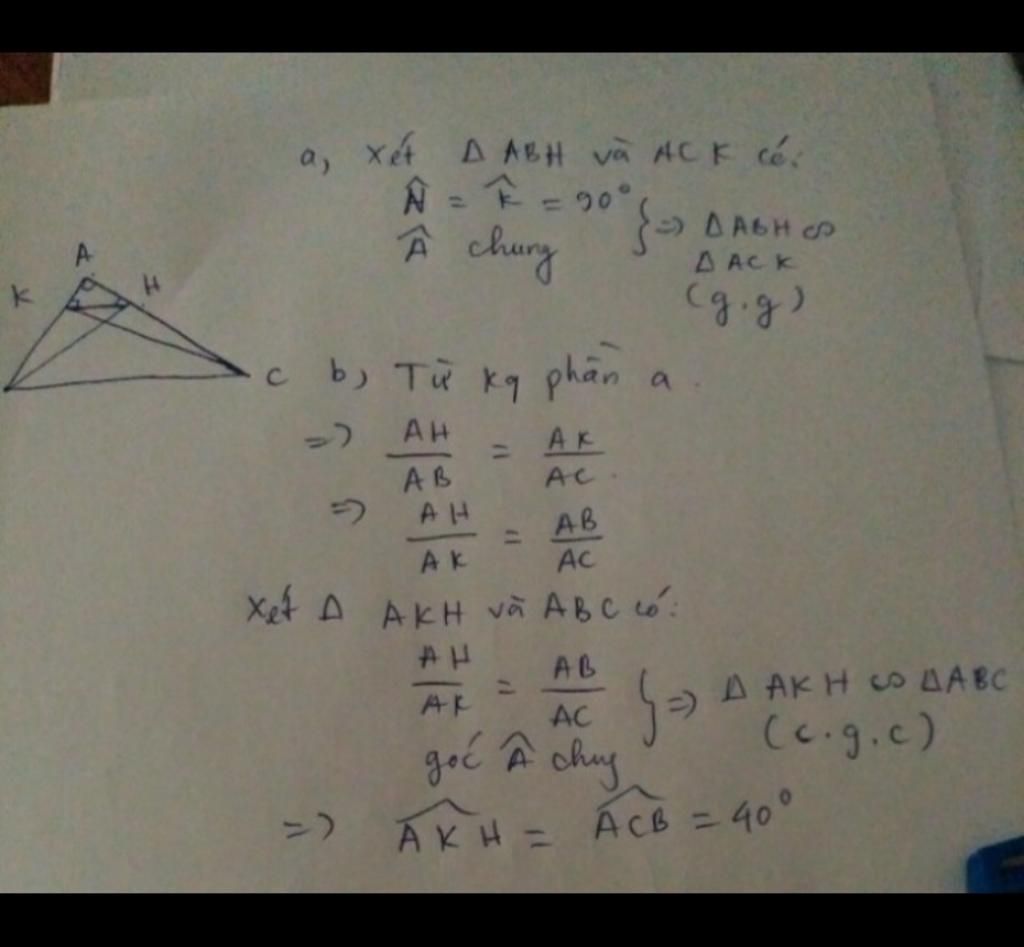 a, Xét Δ ABH và ACK có:
Ĥ = K̂ = 90°
Â chung
} => Δ ABH ∽
Δ ACK
(g.g)
A
K
H
C
b, Từ kq phần a.
=> AH/AB = AK/AC.
=> AH/AK = AB/AC
Xét Δ AKH và ABC có:
AH/AK = AB/AC
góc Â chug
} => Δ AKH ∽ ΔABC
(c.g.c)
=> \widehat{AKH} = \widehat{ACB} = 40°